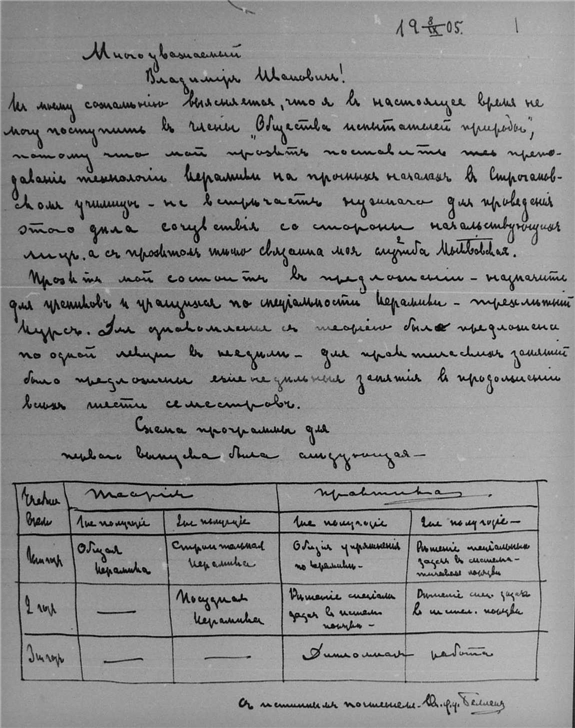 19 8/IX 05.
Многоуважаемый
Владиміръ Ивановичъ!
Къ моему сожалѣнію выясняется, что я въ настоящее время не
могу поступить въ члены "Общества испытателей природы",
потому что мой проэктъ поставить тез препо-
даваніе технологіи керамики на прочныхъ началахъ въ Строганов-
скомъ училищѣ - не встрѣчаетъ нужнаго для проведенія
этого дѣла сочувствія со стороны начальствующихъ
лицъ. а съ проэктомъ тѣсно связанна моя служба Московская.
Проэктъ мой состоитъ въ предложеніи - назначить
для учениковъ и учащихся по спеціальности керамики - трехлѣтній
курсъ. Для ознакомленія съ теоріею было предложена
по одной лекціи въ недѣлю - для практическихъ занятій
было предложены еженедѣльныя занятія въ продолженіи
всѣхъ шести семестровъ.
Схема программы для
перваго выпуска была слѣдующая —
Теорія Практика
1ое полугодіе 2ое полугодіе 1ое полугодіе 2ое полугодіе —
1ый годъ Общая Керамика Строительная керамика Общія упражненія по керамикѣ. Рѣшеніе спеціальныхъ задачъ въ
2 годъ — Посудная керамика Рѣшеніе спеціальн задачъ въ Рѣшеніе спец. задачъ въ
3ій годъ — — Дипломная работа
Съ истиннымъ почтеніемъ.